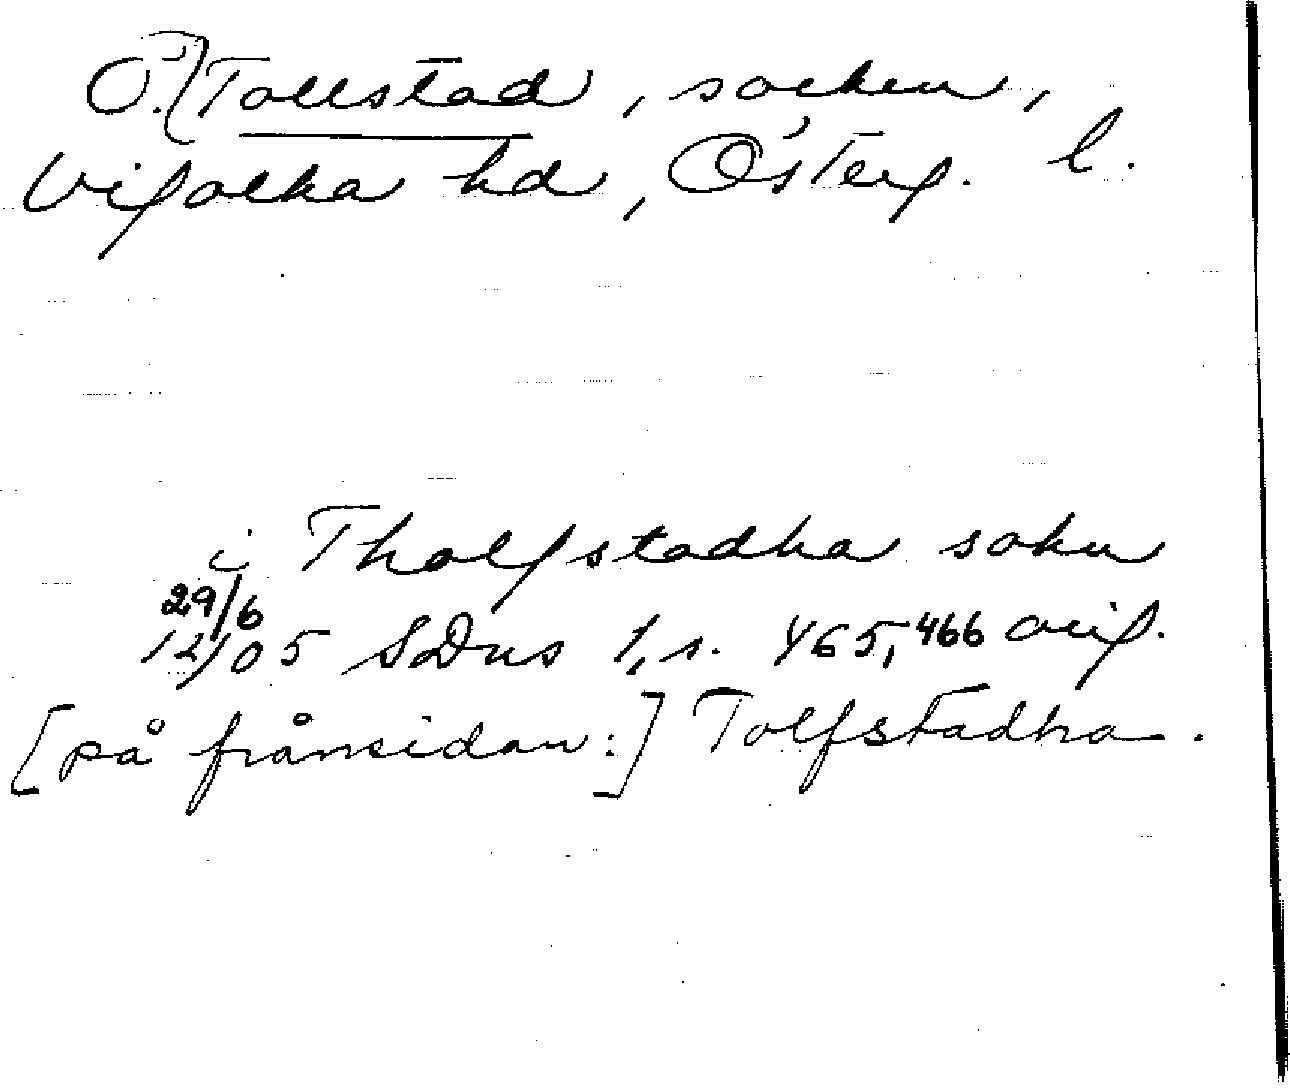 Ö.(Tollstad, socken,
Vifolka hd, Österg. l.
i Tholfstadha sokn
29/6
12/05 SDns 1, s. 465, 466 orig.
[på frånsidan:] Tolfstadha.